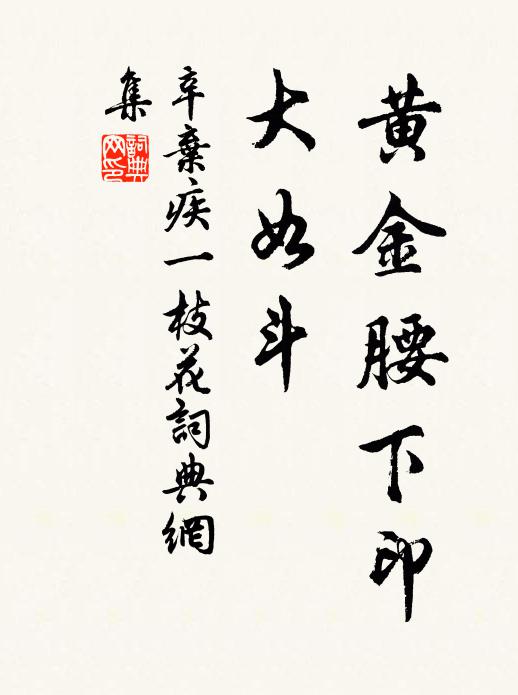 黄金腰下印
大如斗
辛棄疾一枝花詞典網
集
詞典網印